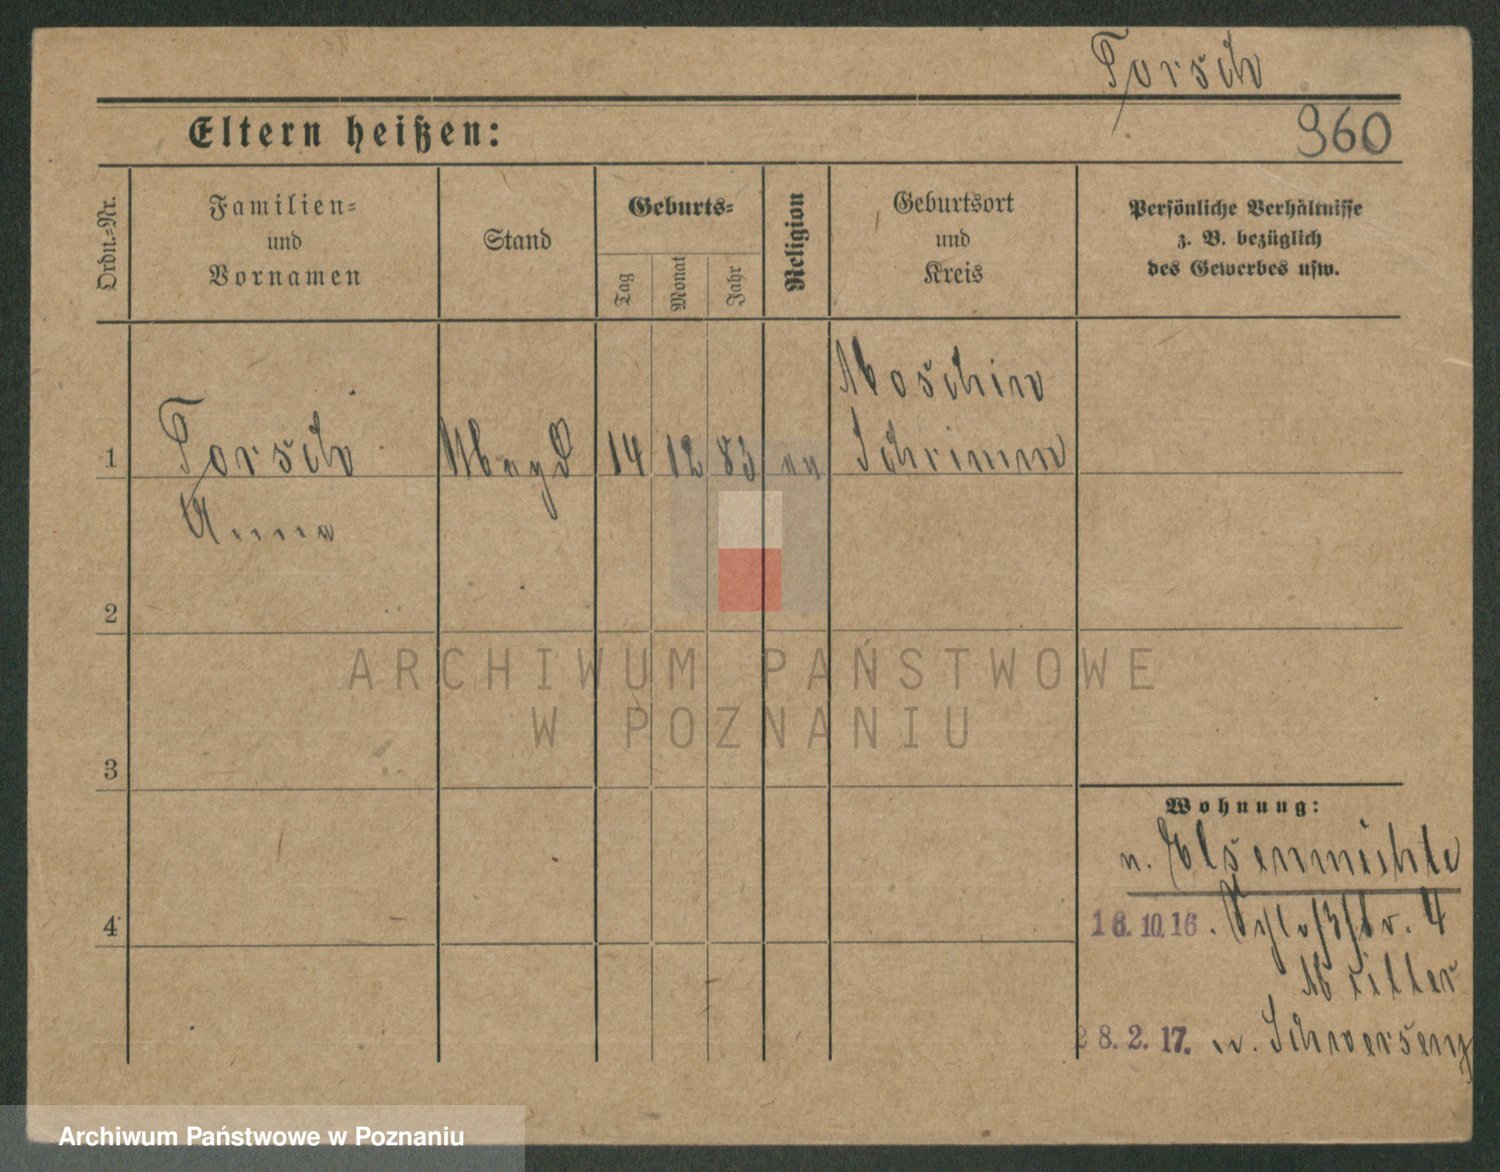 Torsch
960
Eltern heißen:
Ordn.-Nr.
Familien-
und
Vornamen
Stand
Geburts-
Tag
Monat
Jahr
Religion
Geburtsort
und
Kreis
Persönliche Verhältnisse
z. B. bezüglich
des Gewerbes usw.
1
Torsch
Anna
Magd
14 12 83
Moschin
Schrimm
2
3
4
Wohnung:
n. Elsenmühle
16.10.16. Schloßstr. 4
Müller
28.2.17. n. Schwersenz
ARCHIWUM PAŃSTWOWE
W POZNANIU
Archiwum Państwowe w Poznaniu